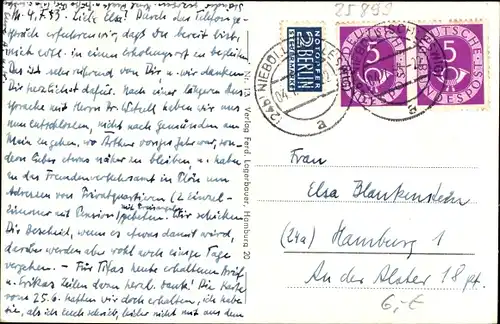 25899
N. 4.7.53. Liebe Elsa! Durch das Telefonge-
spräch erfuhren wir, dass Du bereit bist,
mich evtl. in einen Erholungsort zu begleiten.
Das ist sehr rührend von Dir u. wir danken
Dir herzlichst dafür. Nach einer längeren Aus-
sprache mit Herrn Dr. haben wir uns
nun entschlossen, nicht nach Gemünden am
Main zu gehen, wo Arthur voriges Jahr war, son-
dern lieber etwas näher zu bleiben, u. haben
an das Fremdenverkehrsamt in Plön um
Adressen von Privatquartieren (2 Einzel-
zimmer mit Pension) gebeten. Wir schicken
mit Preisangabe
Dir Bescheid, wenn es etwas damit würd,
darüber werden aber wohl noch einige Tage
vergehen. – Für heute erhaltenen Brief
u. Erikas Zeilen vielen herzl. Dank! Die Karte
vom 25.6. hatten wir doch erhalten, ich habe
sie, als ich Euch schrieb, leider nicht mit aus dem
Nr. 113 Verlag Ferd. Lagerbauer, Hamburg 20
NOTOPFER
2 BERLIN
STEUERMARKE
(24b) NIEBÜLL
a
5
DEUTSCHE
BUNDESPOST
5
DEUTSCHE
BUNDESPOST
a
Frau
Elsa Blankenstein
(24a) Hamburg 1
An der Alster 18 pt.
6,-€